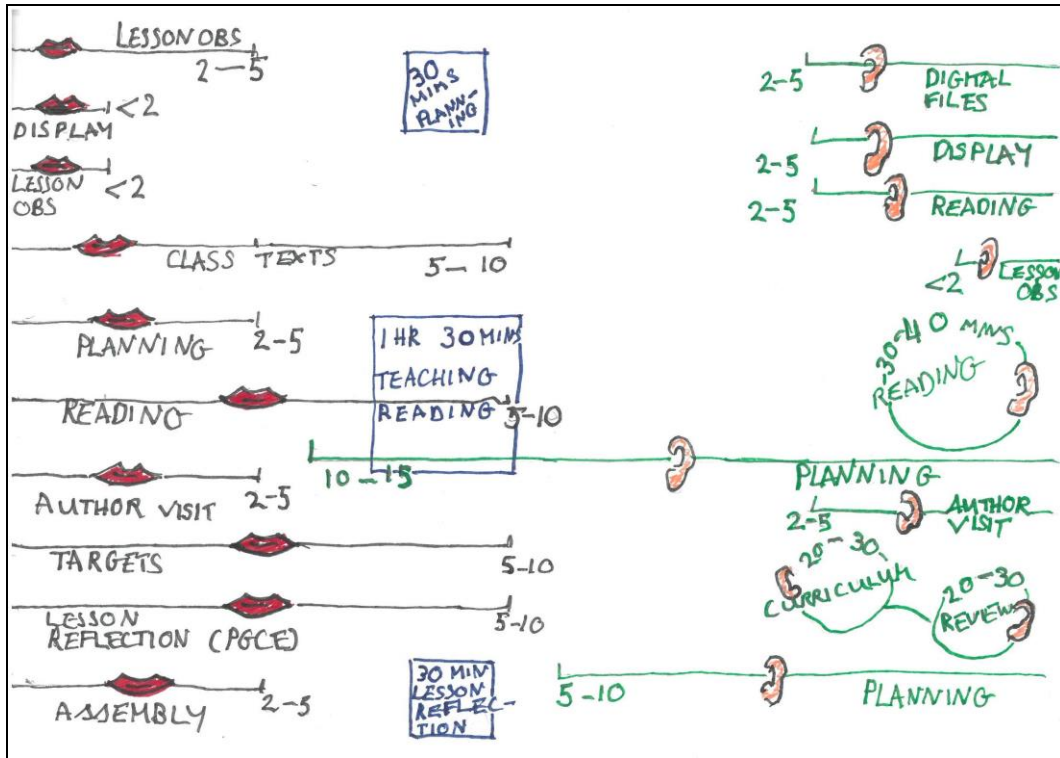 LESSON OBS
2–5
<2
DISPLAY
LESSON
OBS
<2
CLASS TEXTS
5–10
PLANNING
2–5
READING
5–10
AUTHOR VISIT
2–5
TARGETS
5–10
LESSON
REFLECTION (PGCE)
5–10
ASSEMBLY
2–5
30
MINS
PLANN-
ING
1 HR 30 MINS
TEACHING
READING
30 MIN
LESSON
REFLEC-
TION
2–5
DIGITAL
FILES
2–5
DISPLAY
2–5
READING
<2
LESSON
OBS
30–40 MINS
READING
10–15
PLANNING
2–5
AUTHOR
VISIT
20–30
CURRICULUM
20–30
REVIEW
5–10
PLANNING